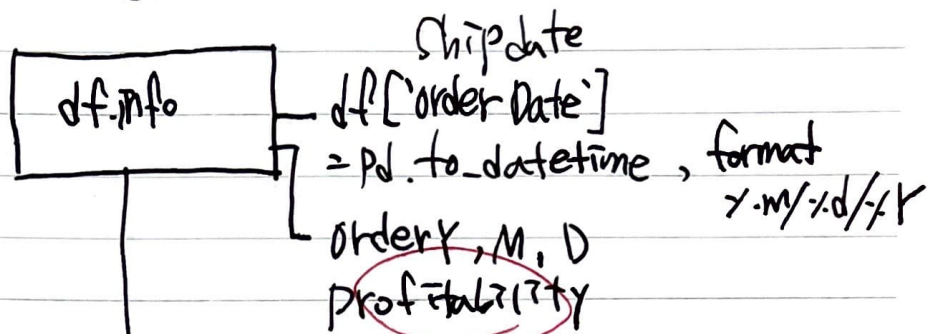 Shipdate
df.info
df['order Date']
=pd.to_datetime, format
%m/%d/%Y
orderY, M, D
profitability